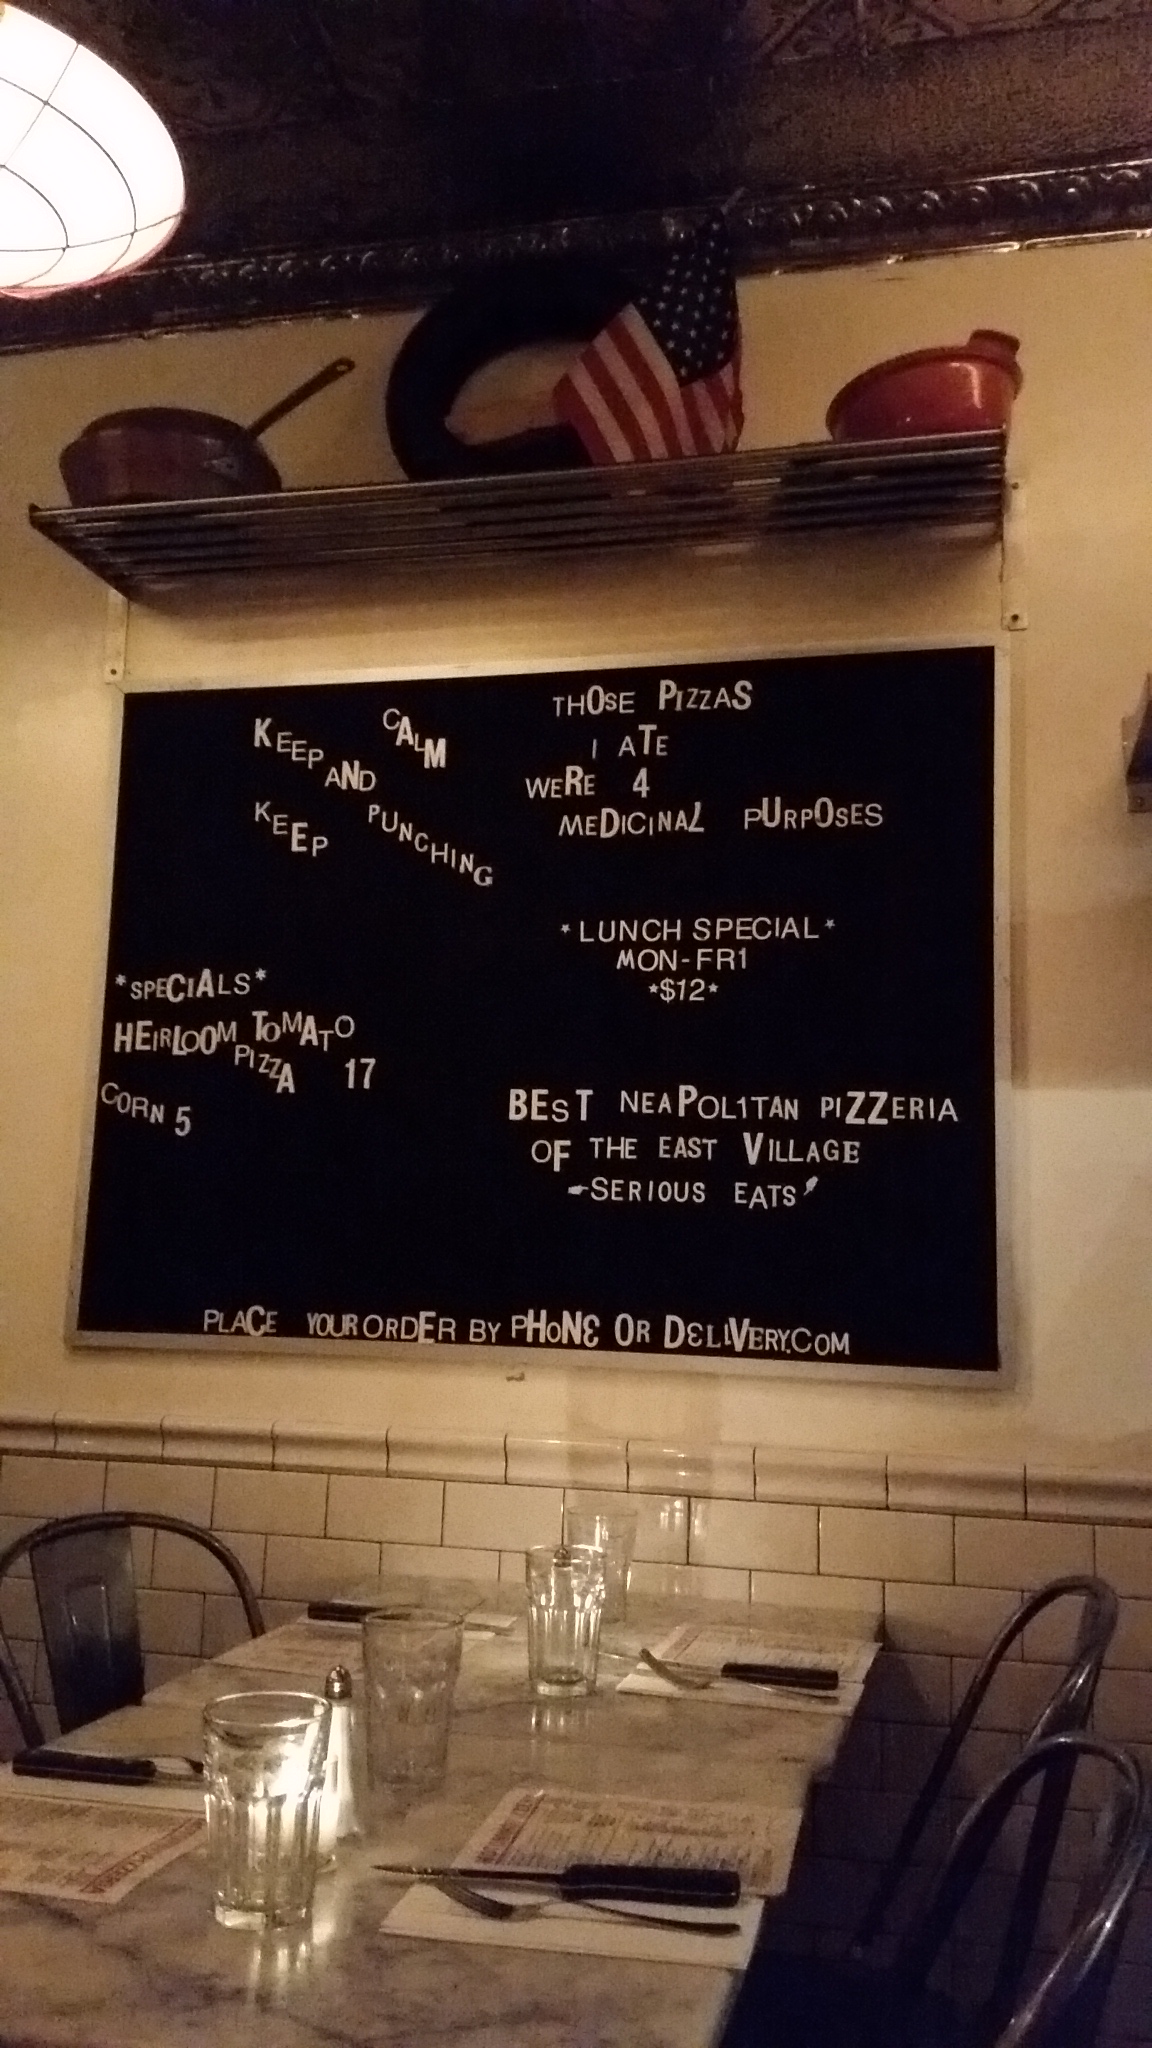 KEEP CALM
AND
KEEP PUNCHING
THOSE PIZZAS
I ATE
WERE 4
MEDICINAL PURPOSES
*LUNCH SPECIAL*
MON-FR1
*$12*
*SPECIALS*
HEIRLOOM TOMATO
PIZZA 17
CORN 5
BEST NEAPOL1TAN PIZZERIA
OF THE EAST VILLAGE
SERIOUS EATS
PLACE YOUR ORDER BY PHONE OR DELIVERY.COM